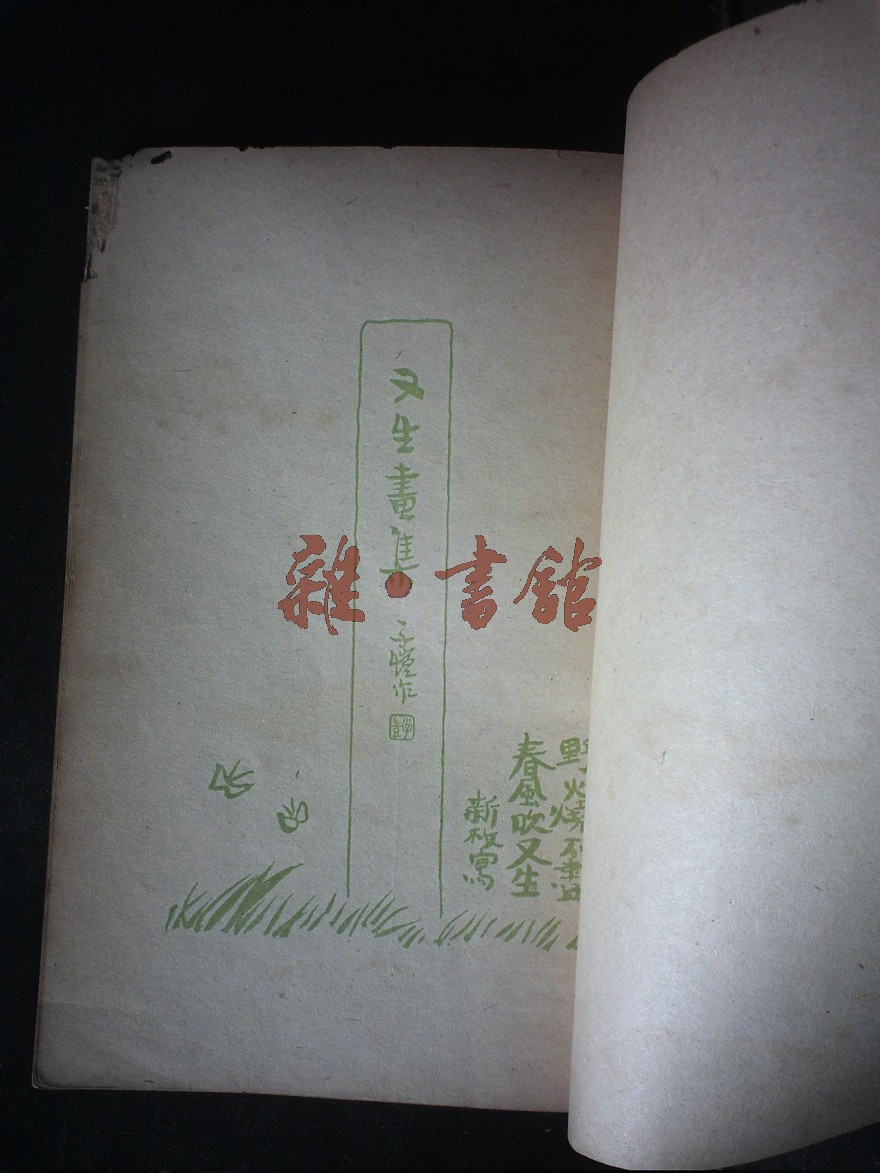 又生畫集
子愷作
野火燒不盡
春風吹又生
新枚寫
雜·書館